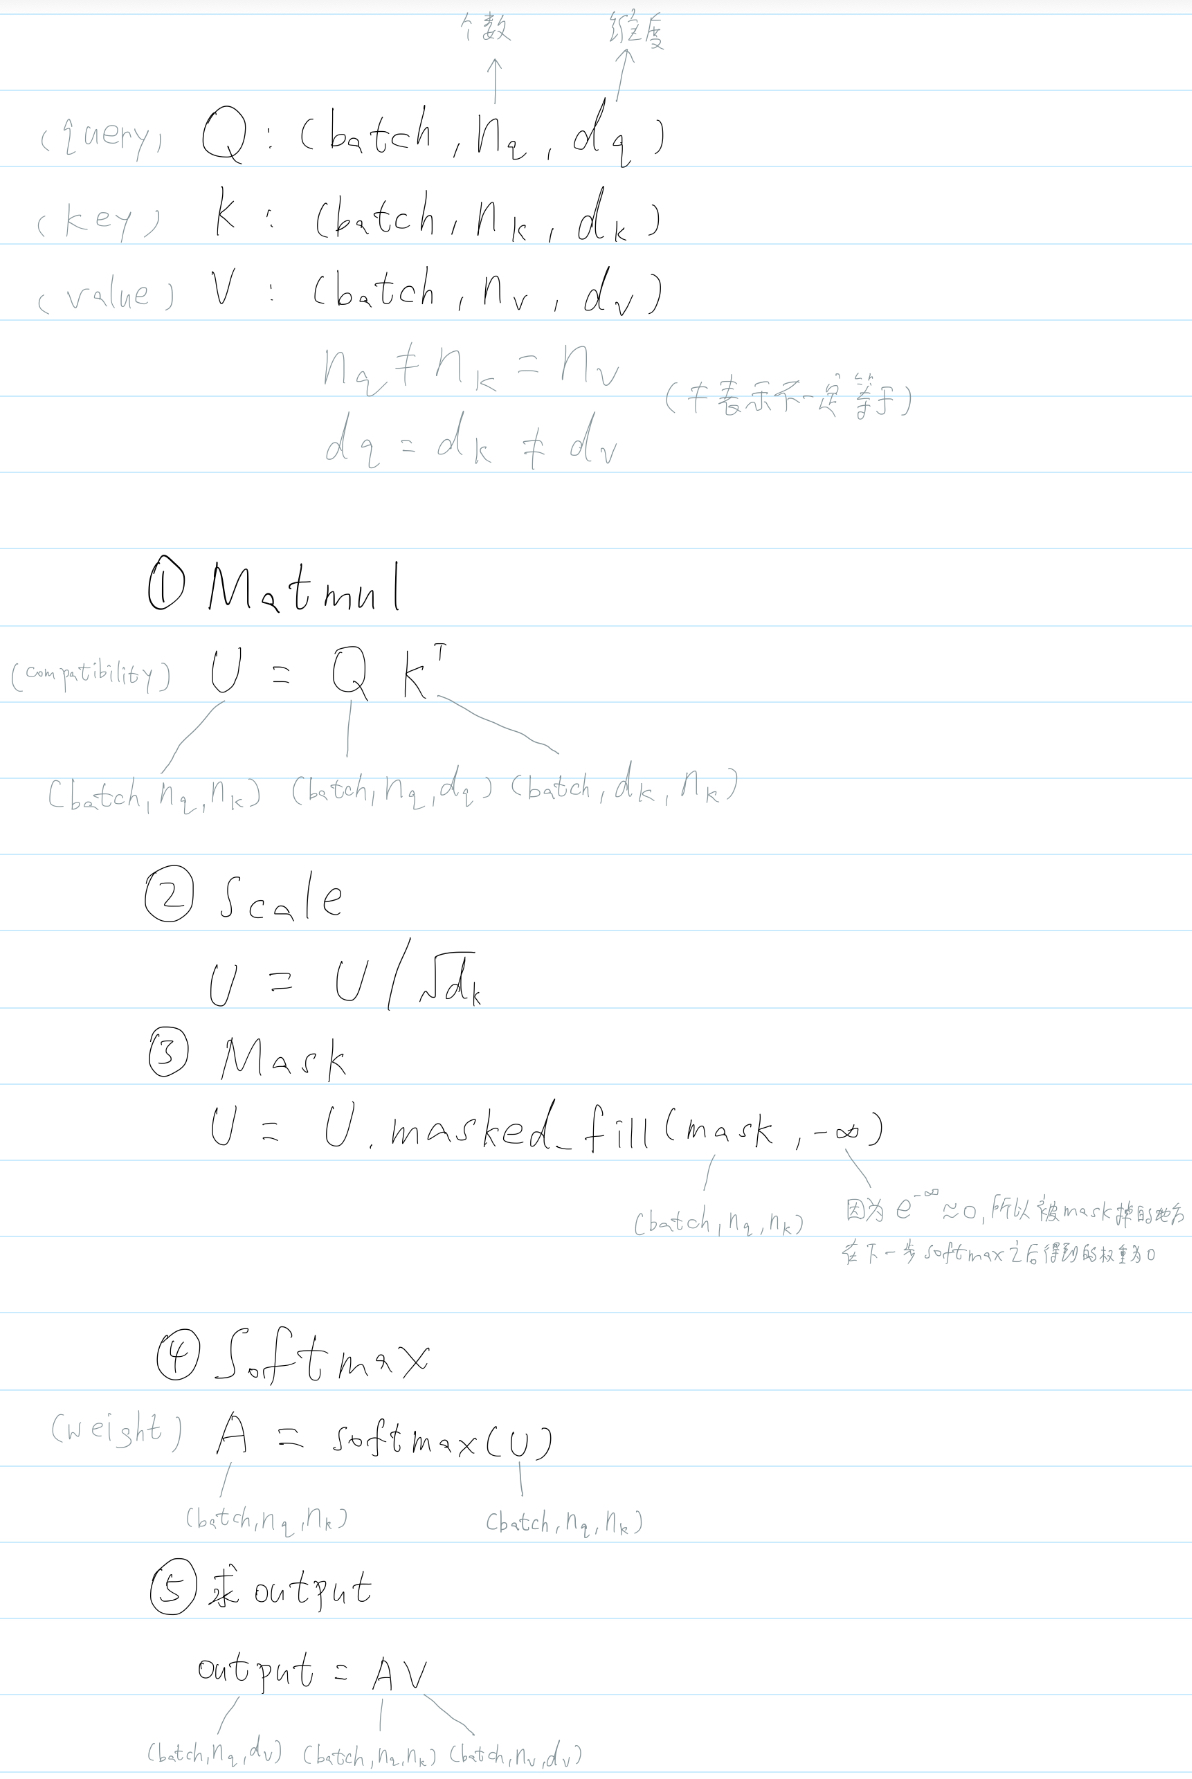 个数 维度
(query) Q : (batch, n_q, d_q)
(key) k : (batch, n_k, d_k)
(value) V : (batch, n_v, d_v)
n_q ≠ n_k = n_v
(≠表示不一定等于)
d_q = d_k ≠ d_v
① Matmul
(compatibility) U = Q k^T
(batch, n_q, n_k) (batch, n_q, d_q) (batch, d_k, n_k)
② Scale
U = U / √d_k
③ Mask
U = U.masked_fill(mask, -∞)
(batch, n_q, n_k) 因为 e^-∞ ≈ 0, 所以被mask掉的地方
在下一步softmax之后得到的权重为0
④ Softmax
(weight) A = softmax(U)
(batch, n_q, n_k) (batch, n_q, n_k)
⑤ 求output
output = AV
(batch, n_q, d_v) (batch, n_q, n_k) (batch, n_v, d_v)